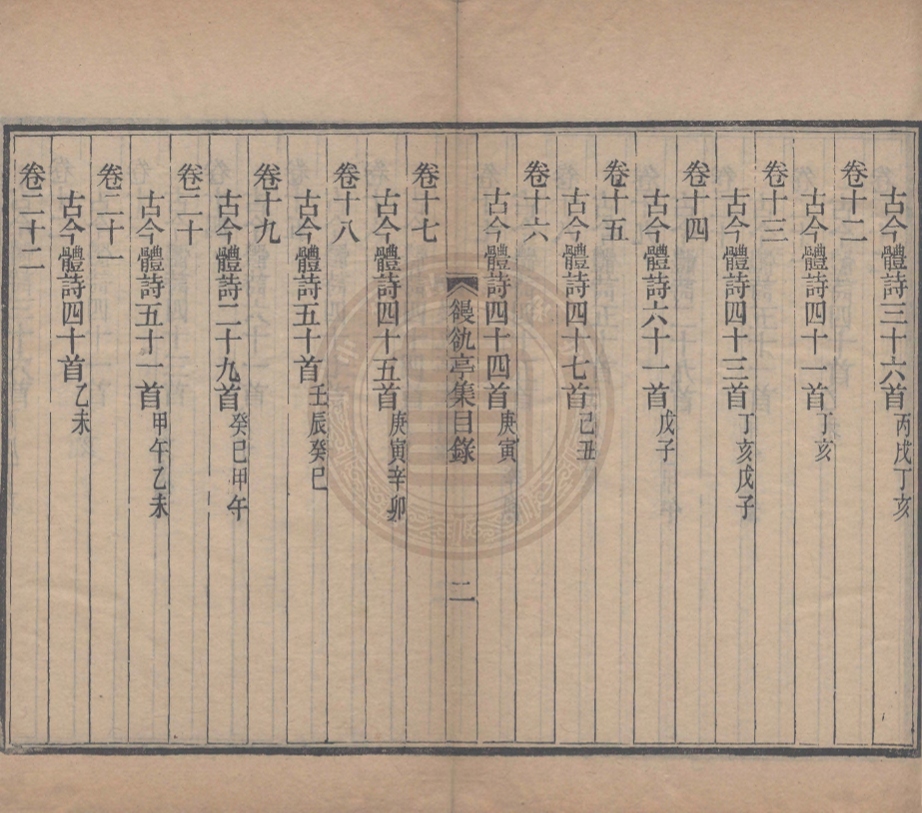 古今體詩三十六首丙戌丁亥
卷十二
古今體詩四十一首丁亥
卷十三
古今體詩四十三首丁亥戊子
卷十四
古今體詩六十一首戊子
卷十五
古今體詩四十七首己丑
卷十六
古今體詩四十四首庚寅
䜱䜪亭集目錄
二
卷十七
古今體詩四十五首庚寅辛卯
卷十八
古今體詩五十首壬辰癸巳
卷十九
古今體詩二十九首癸巳甲午
卷二十
古今體詩五十一首甲午乙未
卷二十一
古今體詩四十首乙未
卷二十二